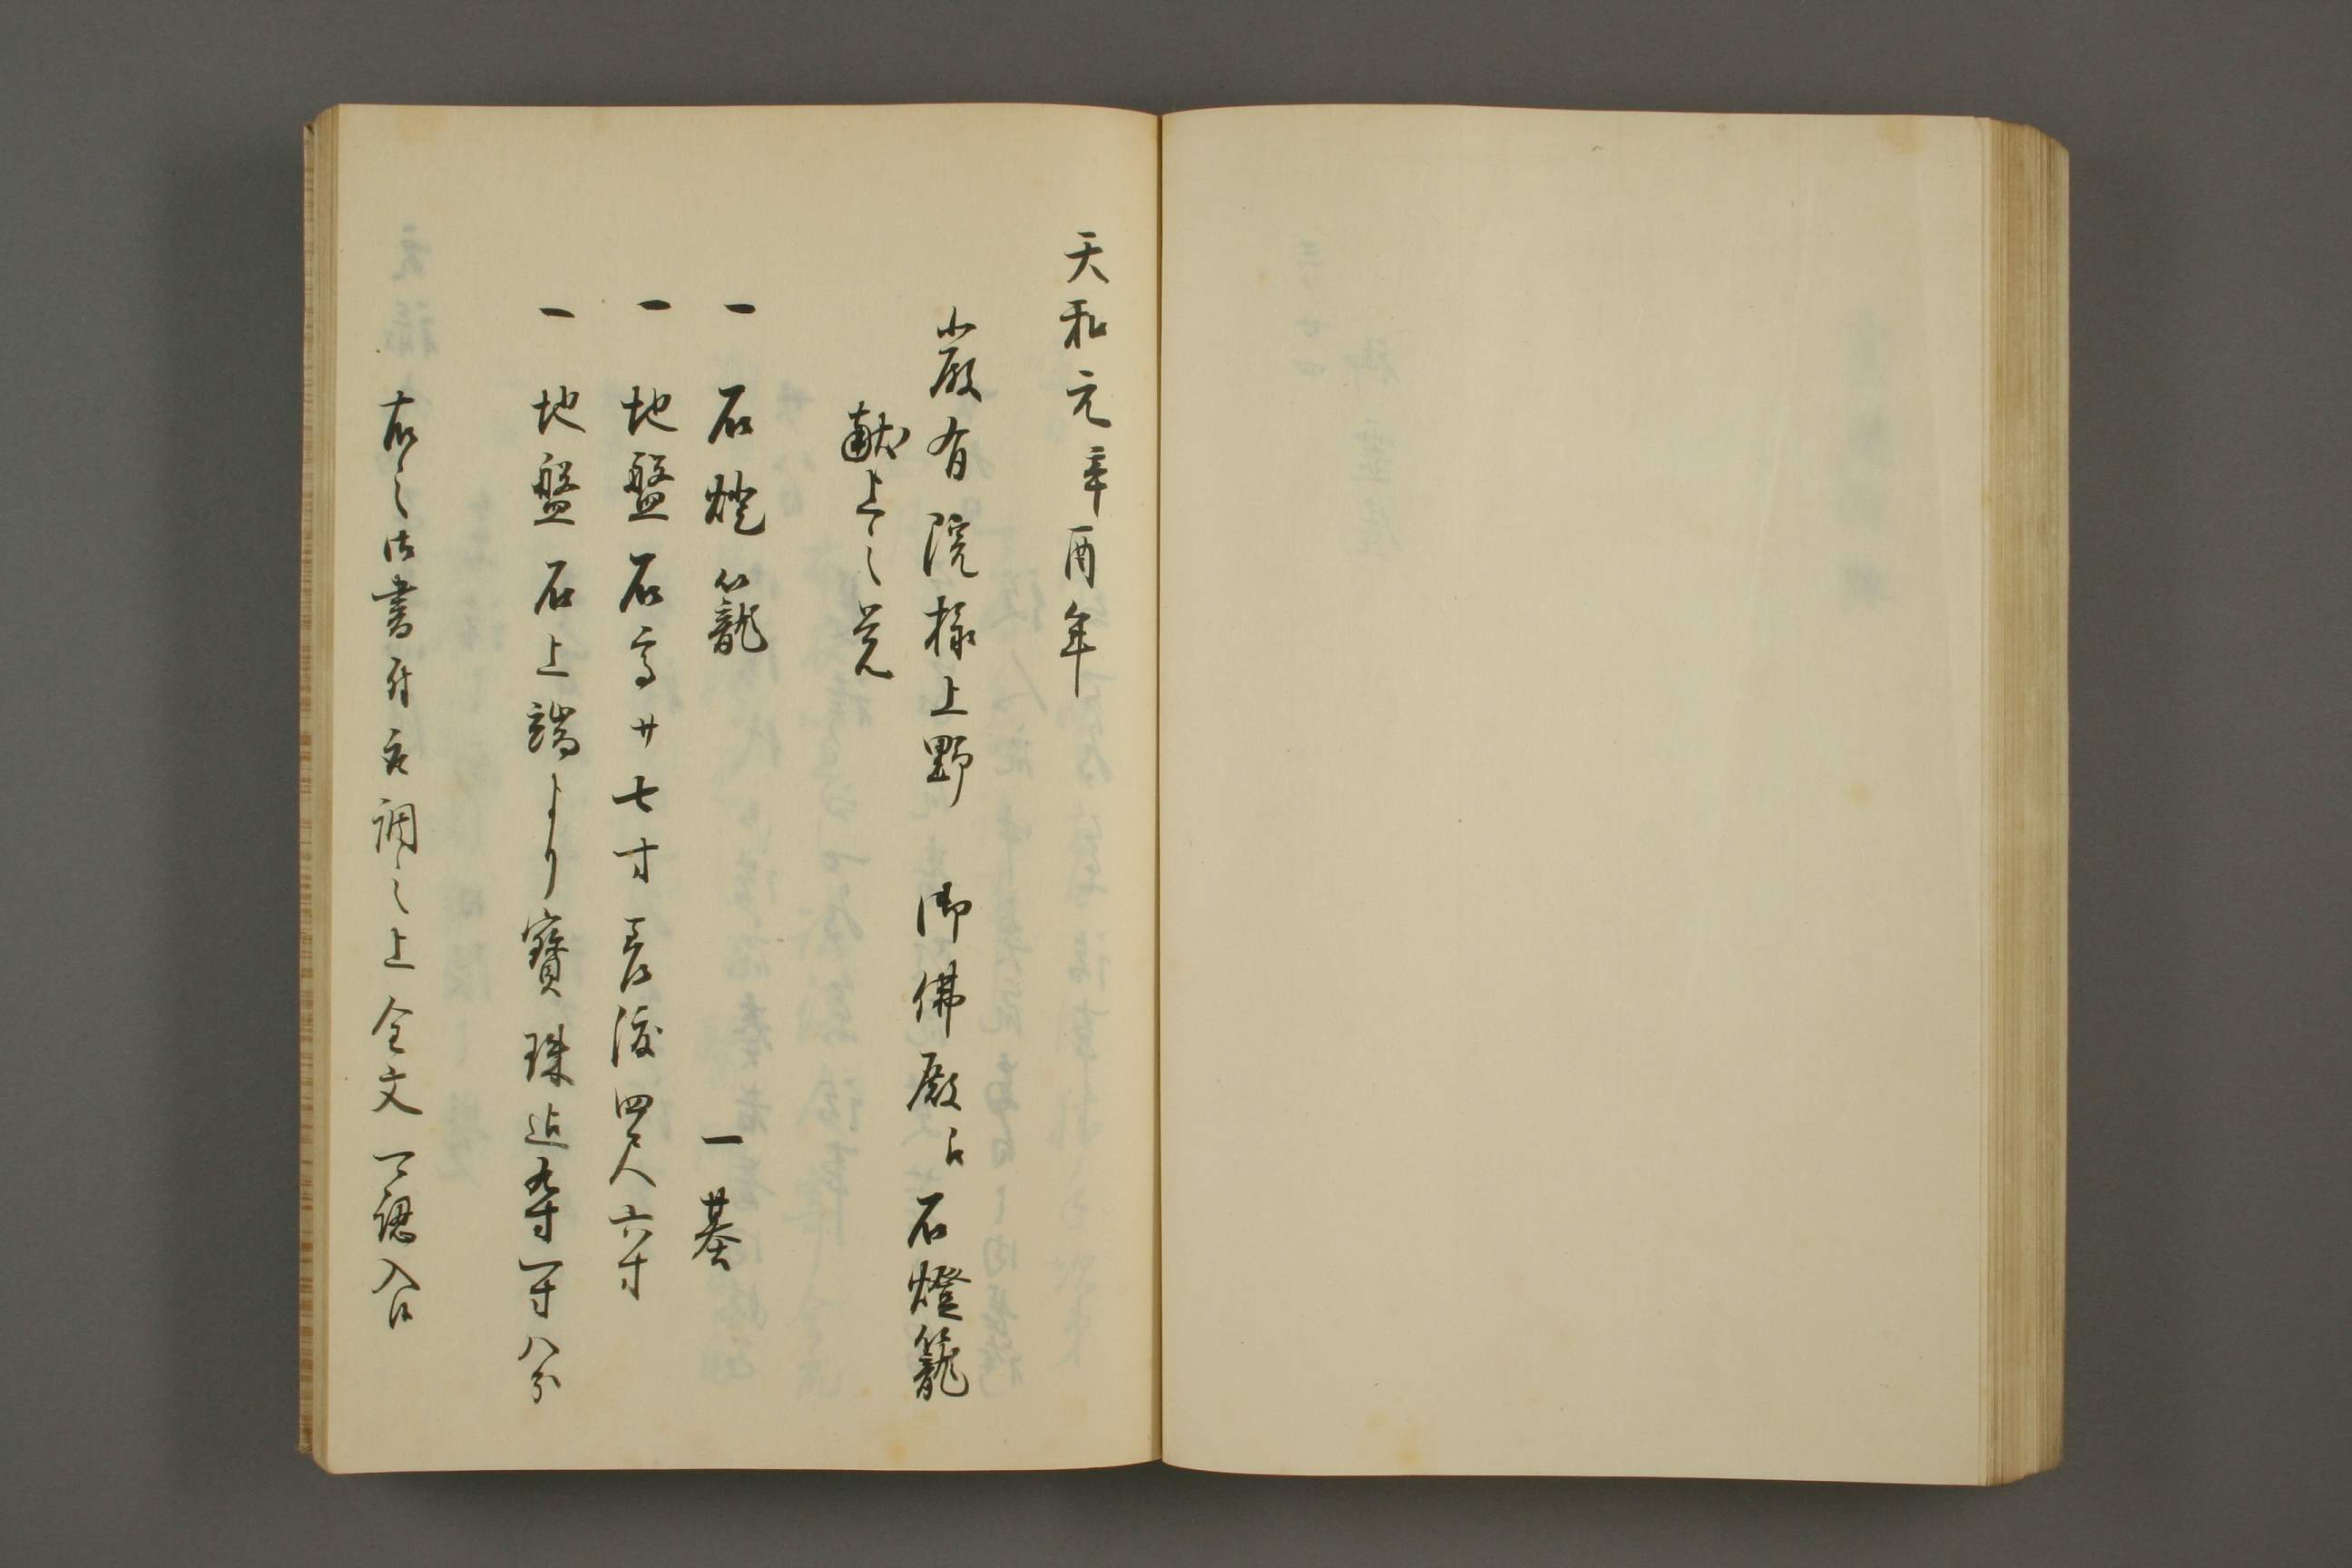 天和元辛酉年
嚴有院様上野　御佛殿江石燈籠
獻上之覚
一　石燈籠　一基
一　地盤石高廿七寸　差渡四尺六寸
一　地盤石上端より寶珠迄九尺一寸八分
右之御書付 調之上全文 認入